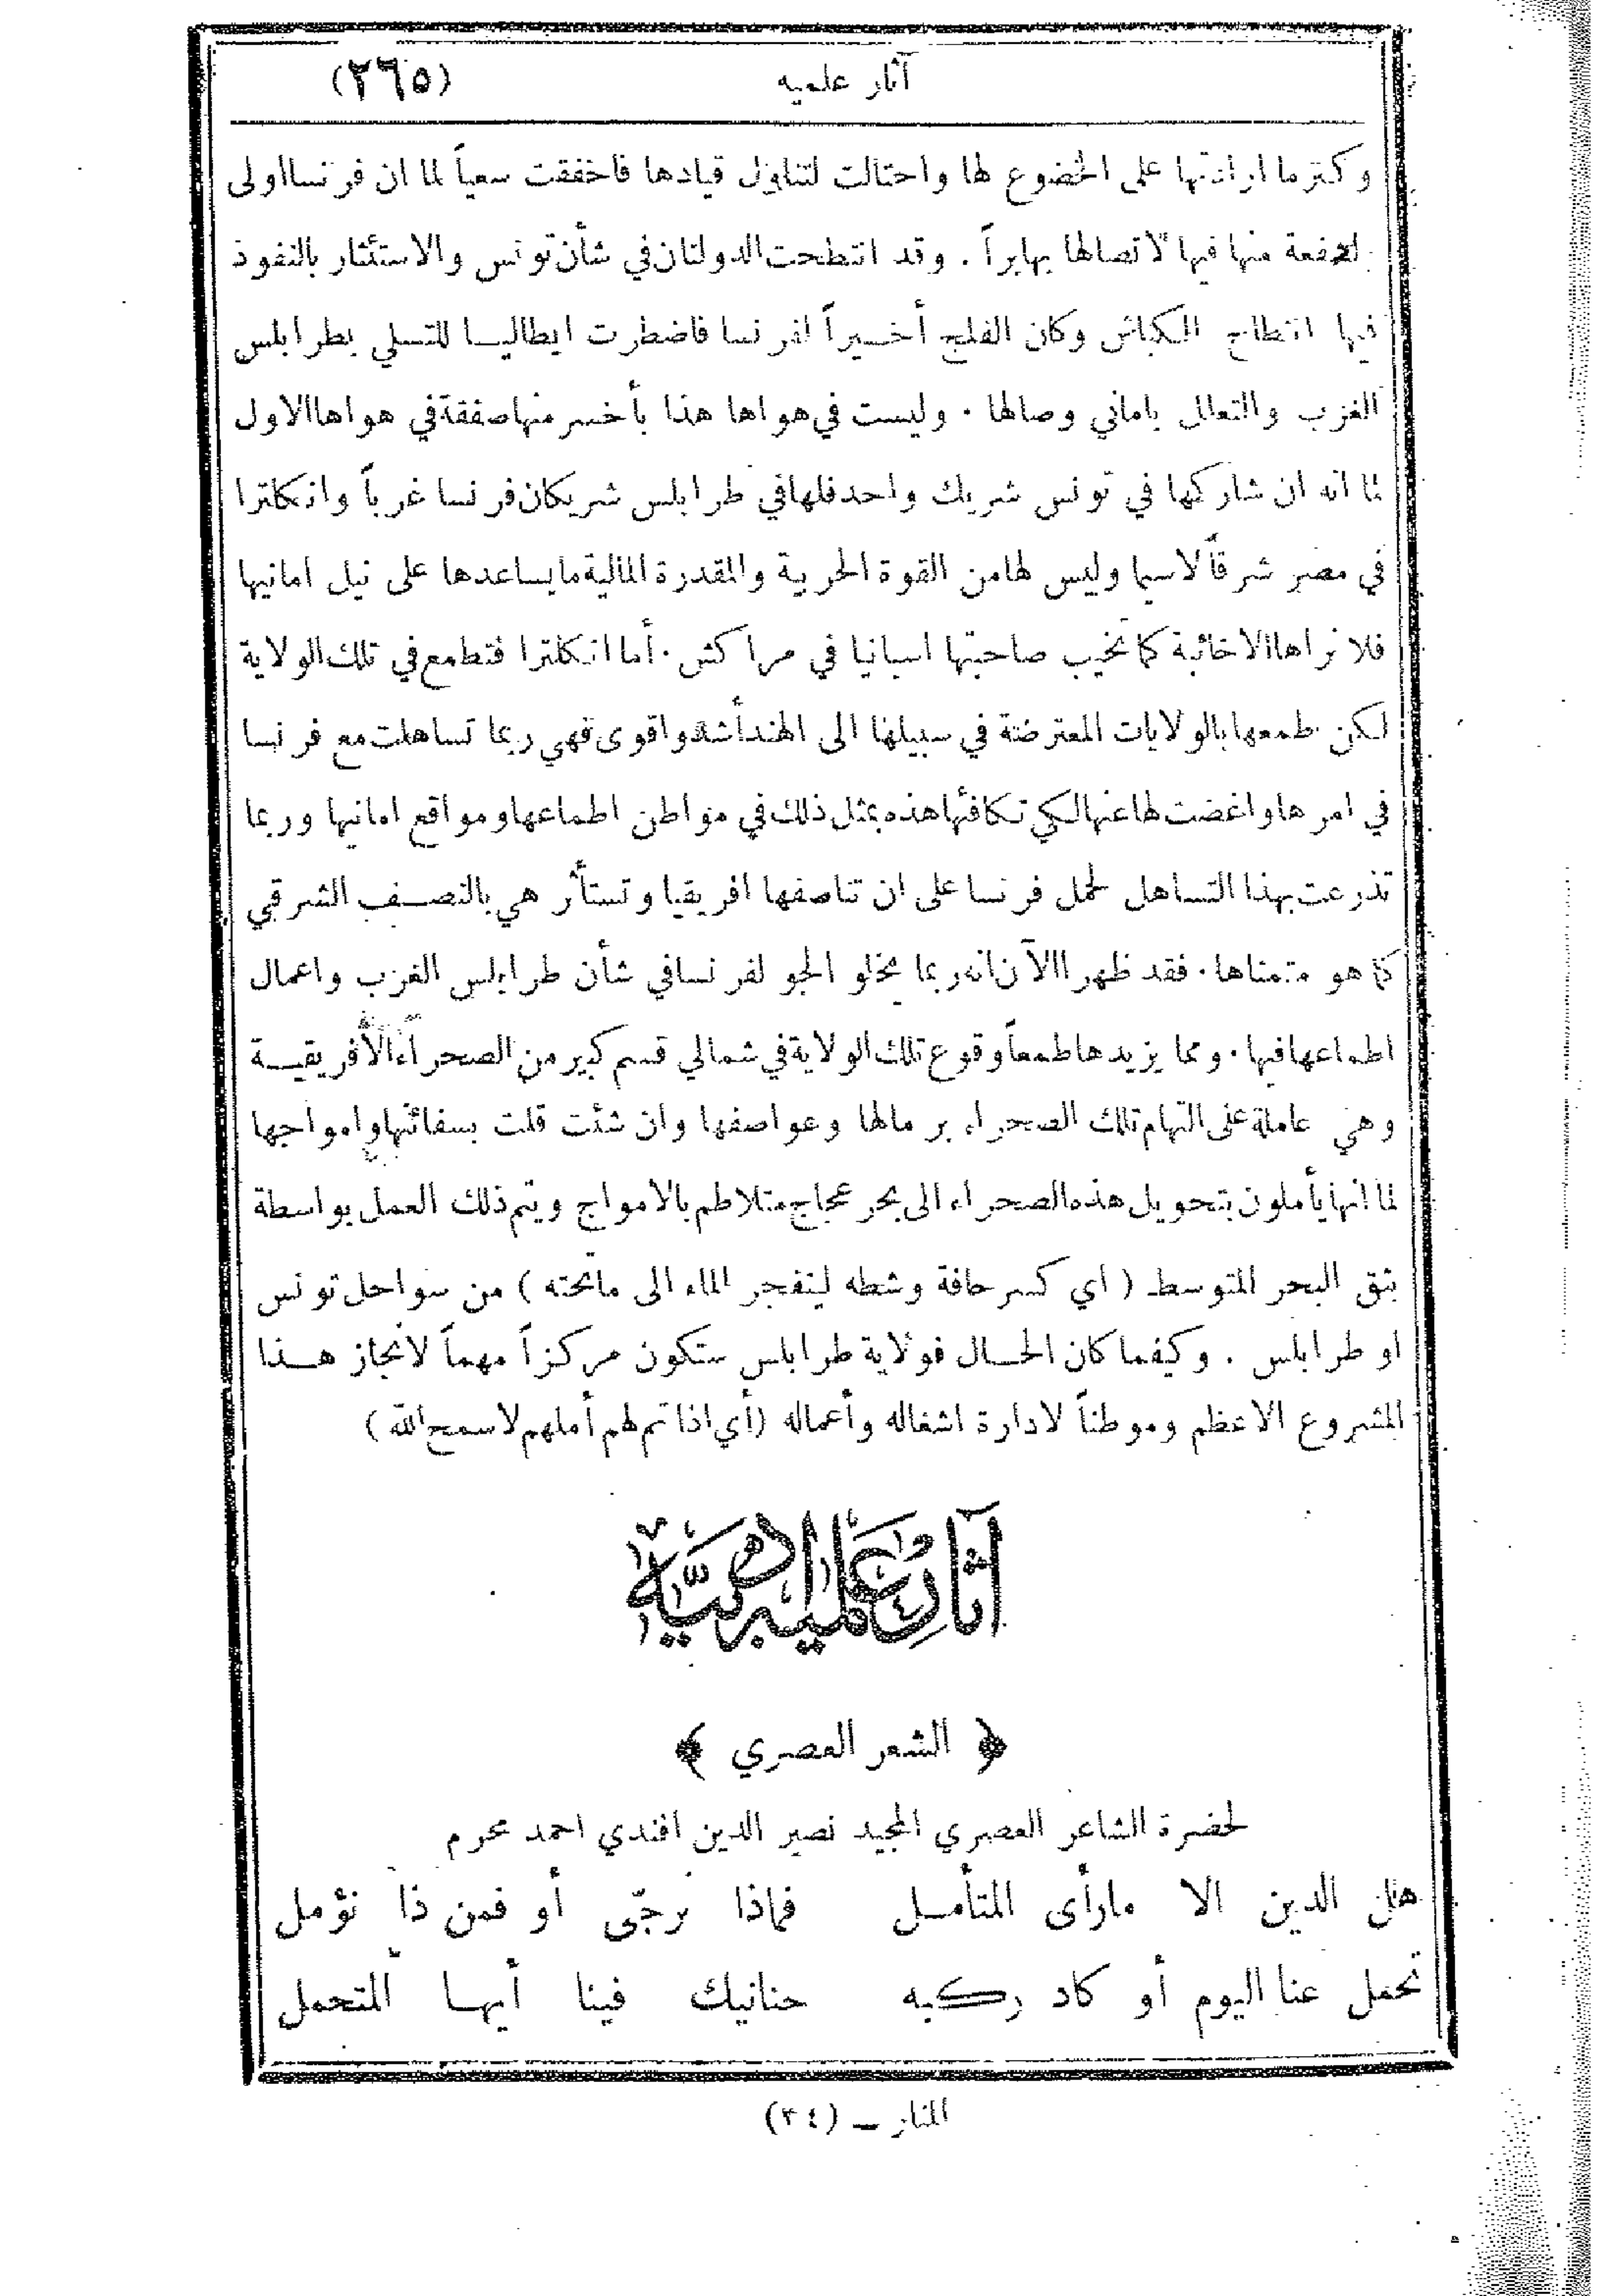 آثار علميه (٢٦٥)
وكثر ما ارادتها على الخضوع لها واحتالت لتناول قيادها فاخفقت سعياً لما ان فرنسا اولى
لشفعة منها فيها لاتصالها بها براً . وقد انتطحت الدولتان في شأن تونس والاستئثار بالنفوذ
فيها انتطاح الكباش وكان الفلج أخيراً لفرنسا فاضطرت ايطاليا للتسلي بطرابلس
الغرب والتعلل باماني وصالها . وليست في هواها هذا بأخسر منها صفقة في هواها الاول
لما انه ان شاركها في تونس شريك واحد فلها في طرابلس شريكان فرنسا غرباً وانكلترا
في مصر شرقاً لاسيما وليس لها من القوة الحربية والمقدرة المالية ما يساعدها على نيل امانيها
فلا نراها الا خائبة كما تخيب صاحبتها اسبانيا في مراكش . أما انكلترا فتطمع في تلك الولاية
لكن طمعها بالولايات المعترضة في سبيلها الى الهند أشد واقوى فهي ربما تساهلت مع فرنسا
في امرها واغضت لها عنها لكي تكافئها هذه بمثل ذلك في مواطن اطماعها ومواقع امانيها وربما
تذرعت بهذا التساهل لحمل فرنسا على ان تناصفها افريقيا وتستأثر هي بالنصف الشرقي
كما هو متمناها . فقد ظهر الآن انه ربما يخلو الجو لفرنسا في شأن طرابلس الغرب واعمال
اطماعها فيها . ومما يزيدها طمعاً وقوع تلك الولاية في شمالي قسم كبير من الصحراء الأفريقية
وهي عاملة على التهام تلك الصحراء برمالها وعواصفها وان شئت قلت بسفائنها وامواجها
لما انها يأملون بتحويل هذه الصحراء الى بحر عجاج متلاطم بالامواج ويتم ذلك العمل بواسطة
بثق البحر المتوسط ( اي كسر حافة وشطه لينفجر الماء الى ماتحته ) من سواحل تونس
او طرابلس . وكيفما كان الحال فولاية طرابلس ستكون مركزاً مهماً لانجاز هذا
المشروع الاعظم وموطناً لادارة اشغاله وأعماله (أي اذا تم لهم أملهم لاسمح الله )
آثار علمية ادبية
﴿ الشعر العصري ﴾
لحضرة الشاعر العصري المجيد نصير الدين افندي احمد محرم
هل الدين الا مارأى المتأمل فماذا نرجّى أو فمن ذا نؤمل
تحمل عنا اليوم أو كاد ركبه حنانيك فينا أيها المتحمل
المنار — (٣٤)